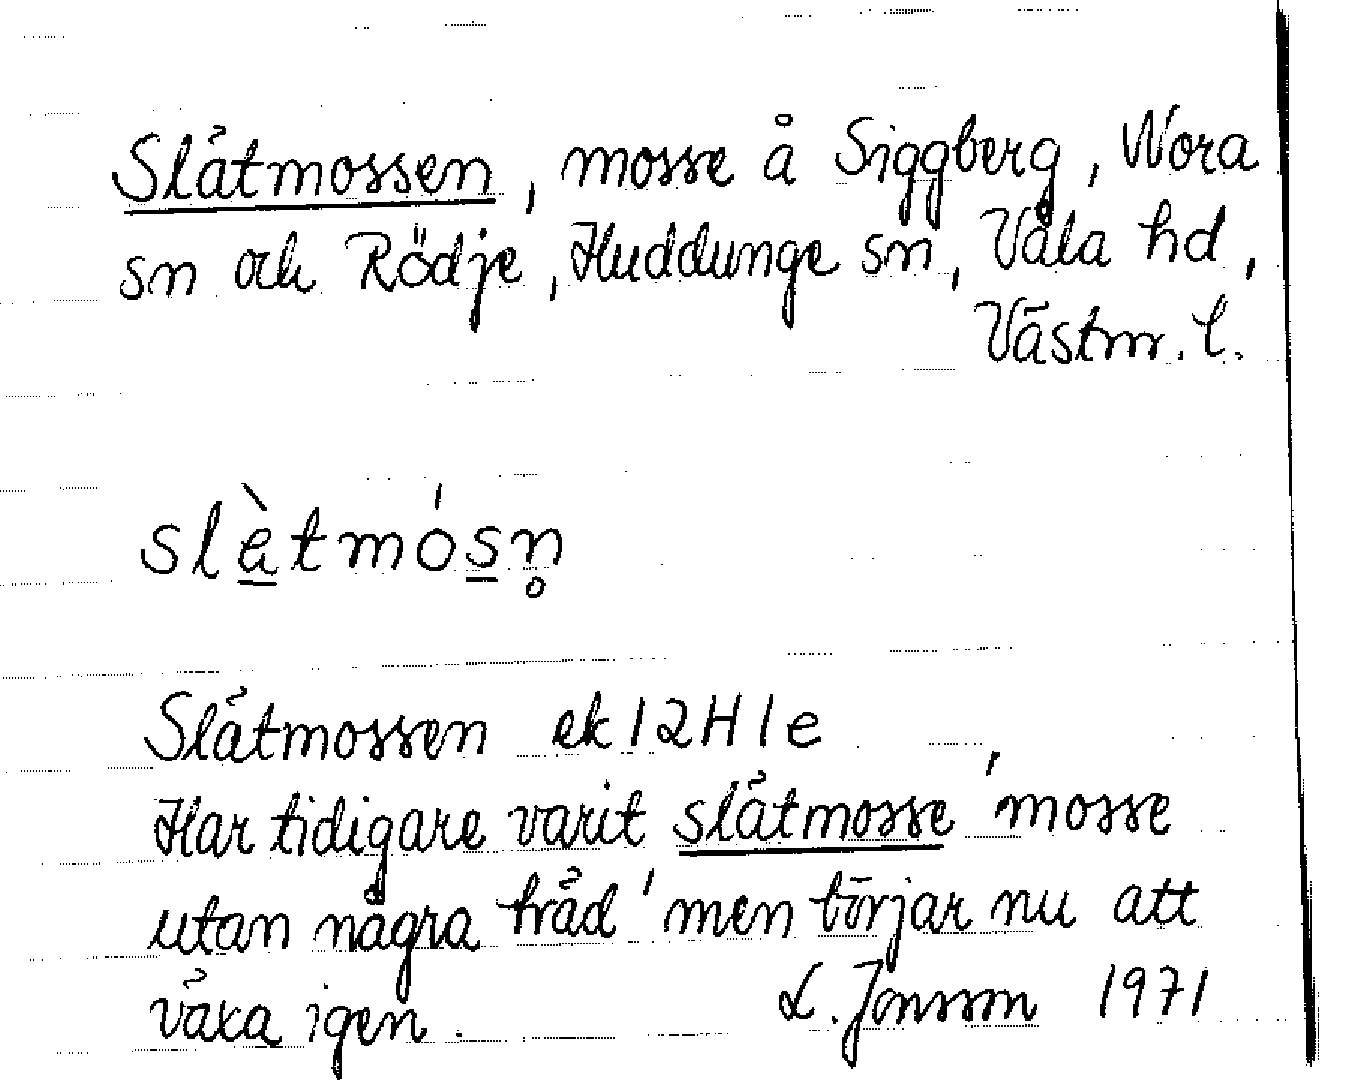 Slätmossen, mosse å Siggberg, Nora
sn och Rödje, Huddunge sn, Våla hd,
Västm. l.
slæ̲̀tmós̲n̥
Slätmossen ek 12H 1e
Har tidigare varit slätmosse 'mosse
utan några träd' men börjar nu att
växa igen. L. Jonsson 1971